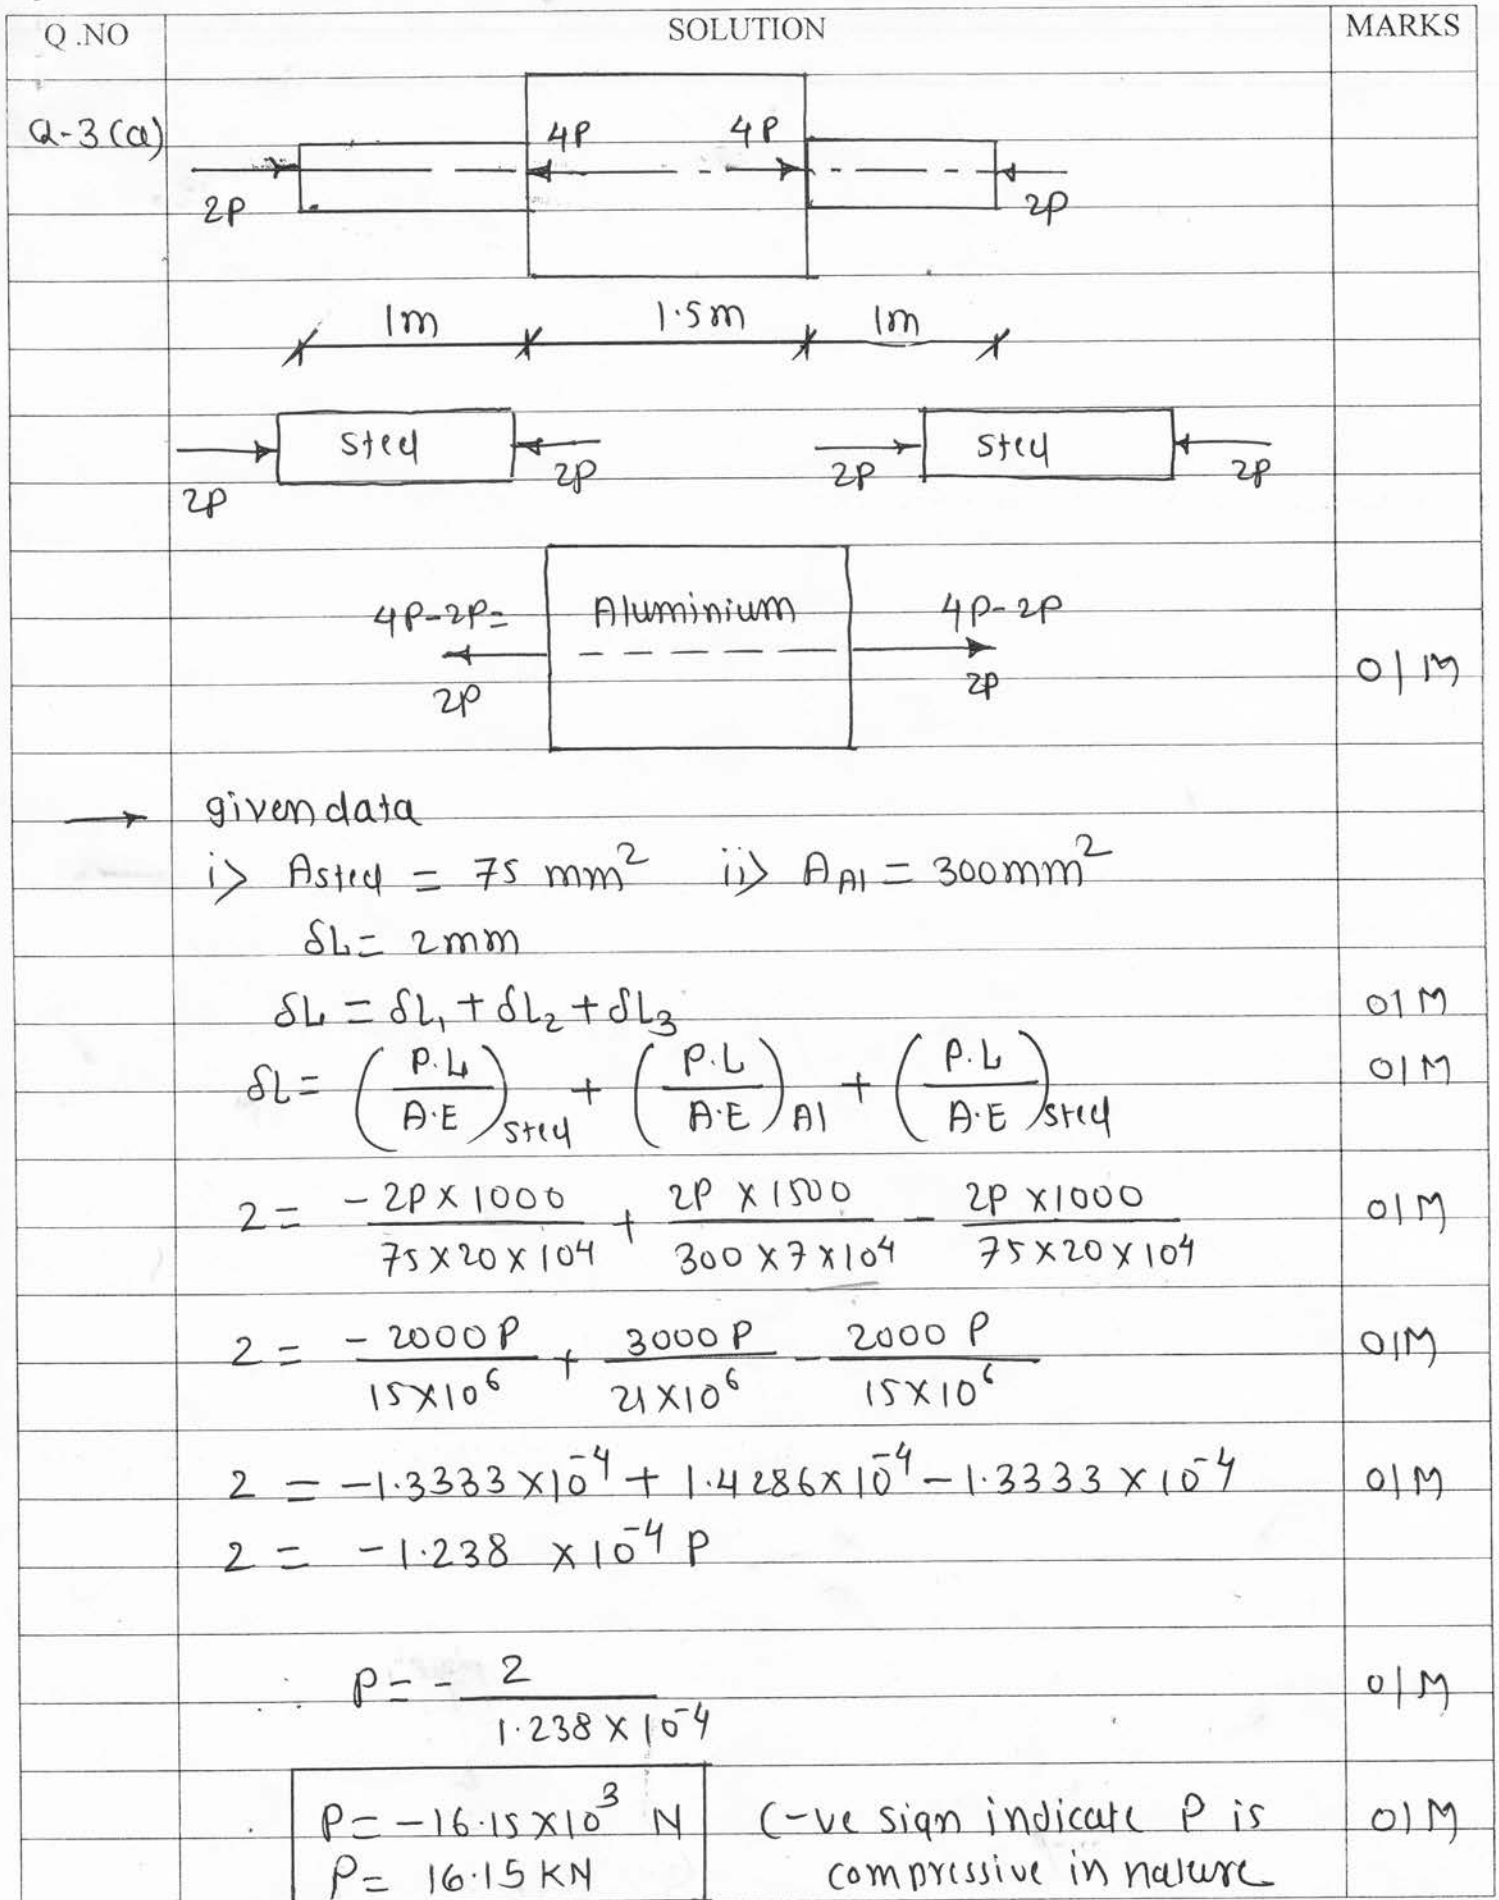 Q.NO SOLUTION MARKS
Q-3(a) 4P 4P
2P 2P
1m 1.5m 1m
Steel Steel
2P 2P 2P 2P
4P-2P= Aluminium 4P-2P
2P 2P 01M
→ given data
i> Asteel = 75 mm² ii> A Al = 300mm²
δL= 2mm
δL = δL₁ + δL₂ + δL₃ 01M
δL = (P.L/A.E)steel + (P.L/A.E)Al + (P.L/A.E)steel 01M
2 = -2P×1000/75×20×10⁴ + 2P×1500/300×7×10⁴ - 2P×1000/75×20×10⁴ 01M
2 = -2000P/15×10⁶ + 3000P/21×10⁶ - 2000P/15×10⁶ 01M
2 = -1.3333×10⁻⁴ + 1.4286×10⁻⁴ - 1.3333×10⁻⁴ 01M
2 = -1.238 ×10⁻⁴ P
∴ P = - 2/1.238×10⁻⁴ 01M
P = -16.15×10³ N (-ve sign indicate P is 01M
P = 16.15 KN compressive in nature